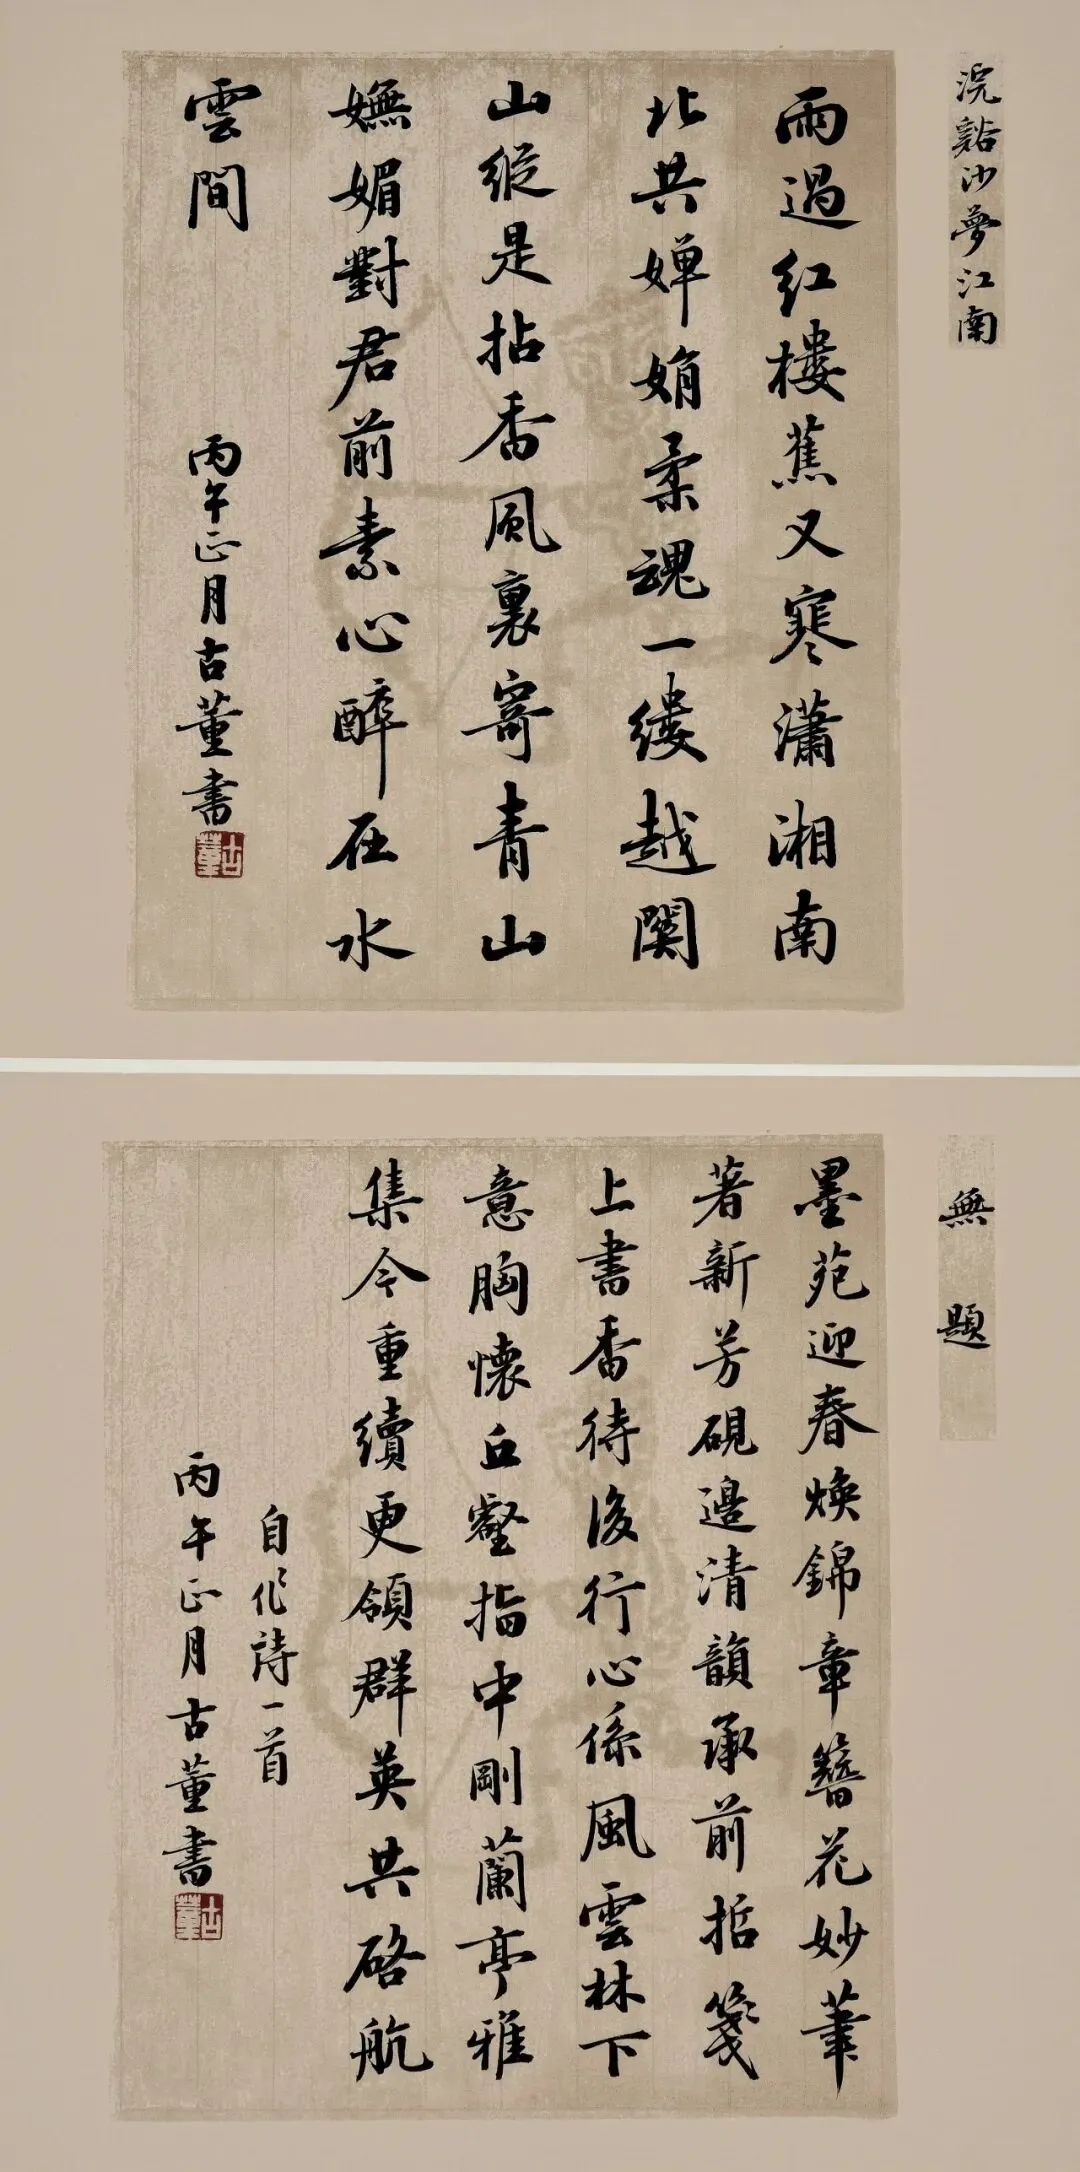 浣谿沙夢江南
雨過红樓蕉又寒瀟湘南
北共嬋娟柔魂一缕越關
山縱是拈香風裏寄青山
嫵媚對君前素心醉在水
雲間
丙午正月古董書
古董
無題
墨苑迎春焕錦章簪花妙筆
著新芳硯邊清韻承前哲箋
上書香待後行心係風雲林下
意胸懷丘壑指中剛蘭亭雅
集今重續更領群英共啓航
自作詩一首
丙午正月古董書
古董